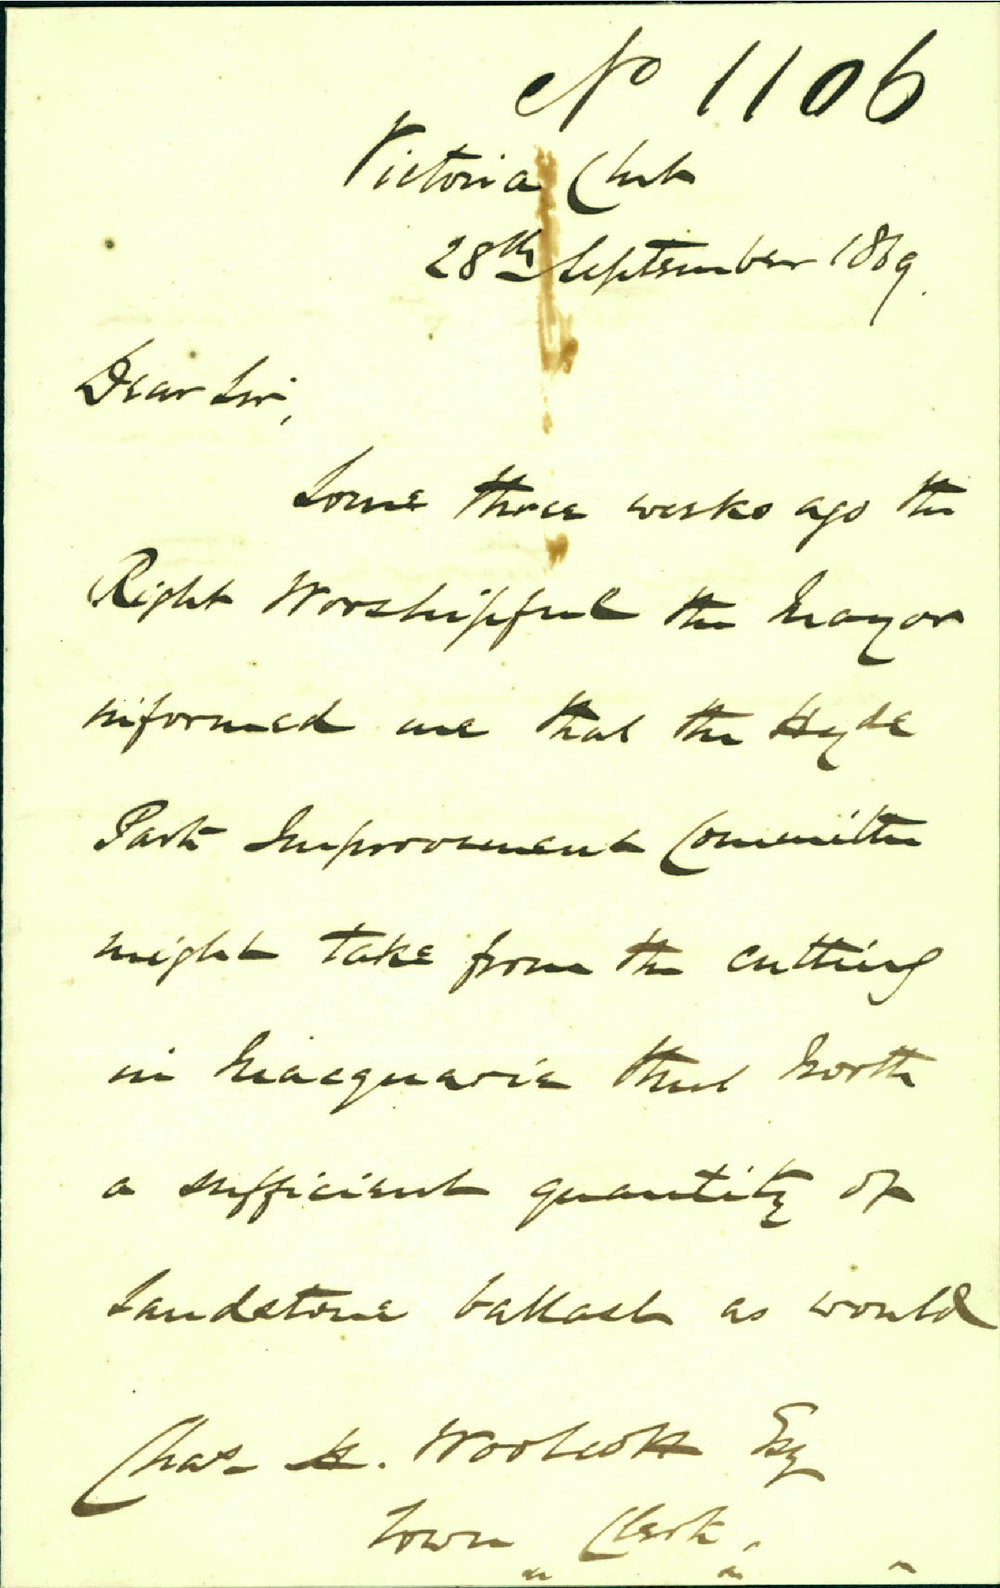 No 1106
Victoria Club
28th September 1869.
Dear Sir,
Some three weeks ago the
Right Worshipful the Mayor
informed me that the Hyde
Park Improvement Committee
might take from the cutting
in Macquarie Street North
a sufficient quantity of
Sandstone ballast as would
Chas. H. Woolcott Esq
Town Clerk.